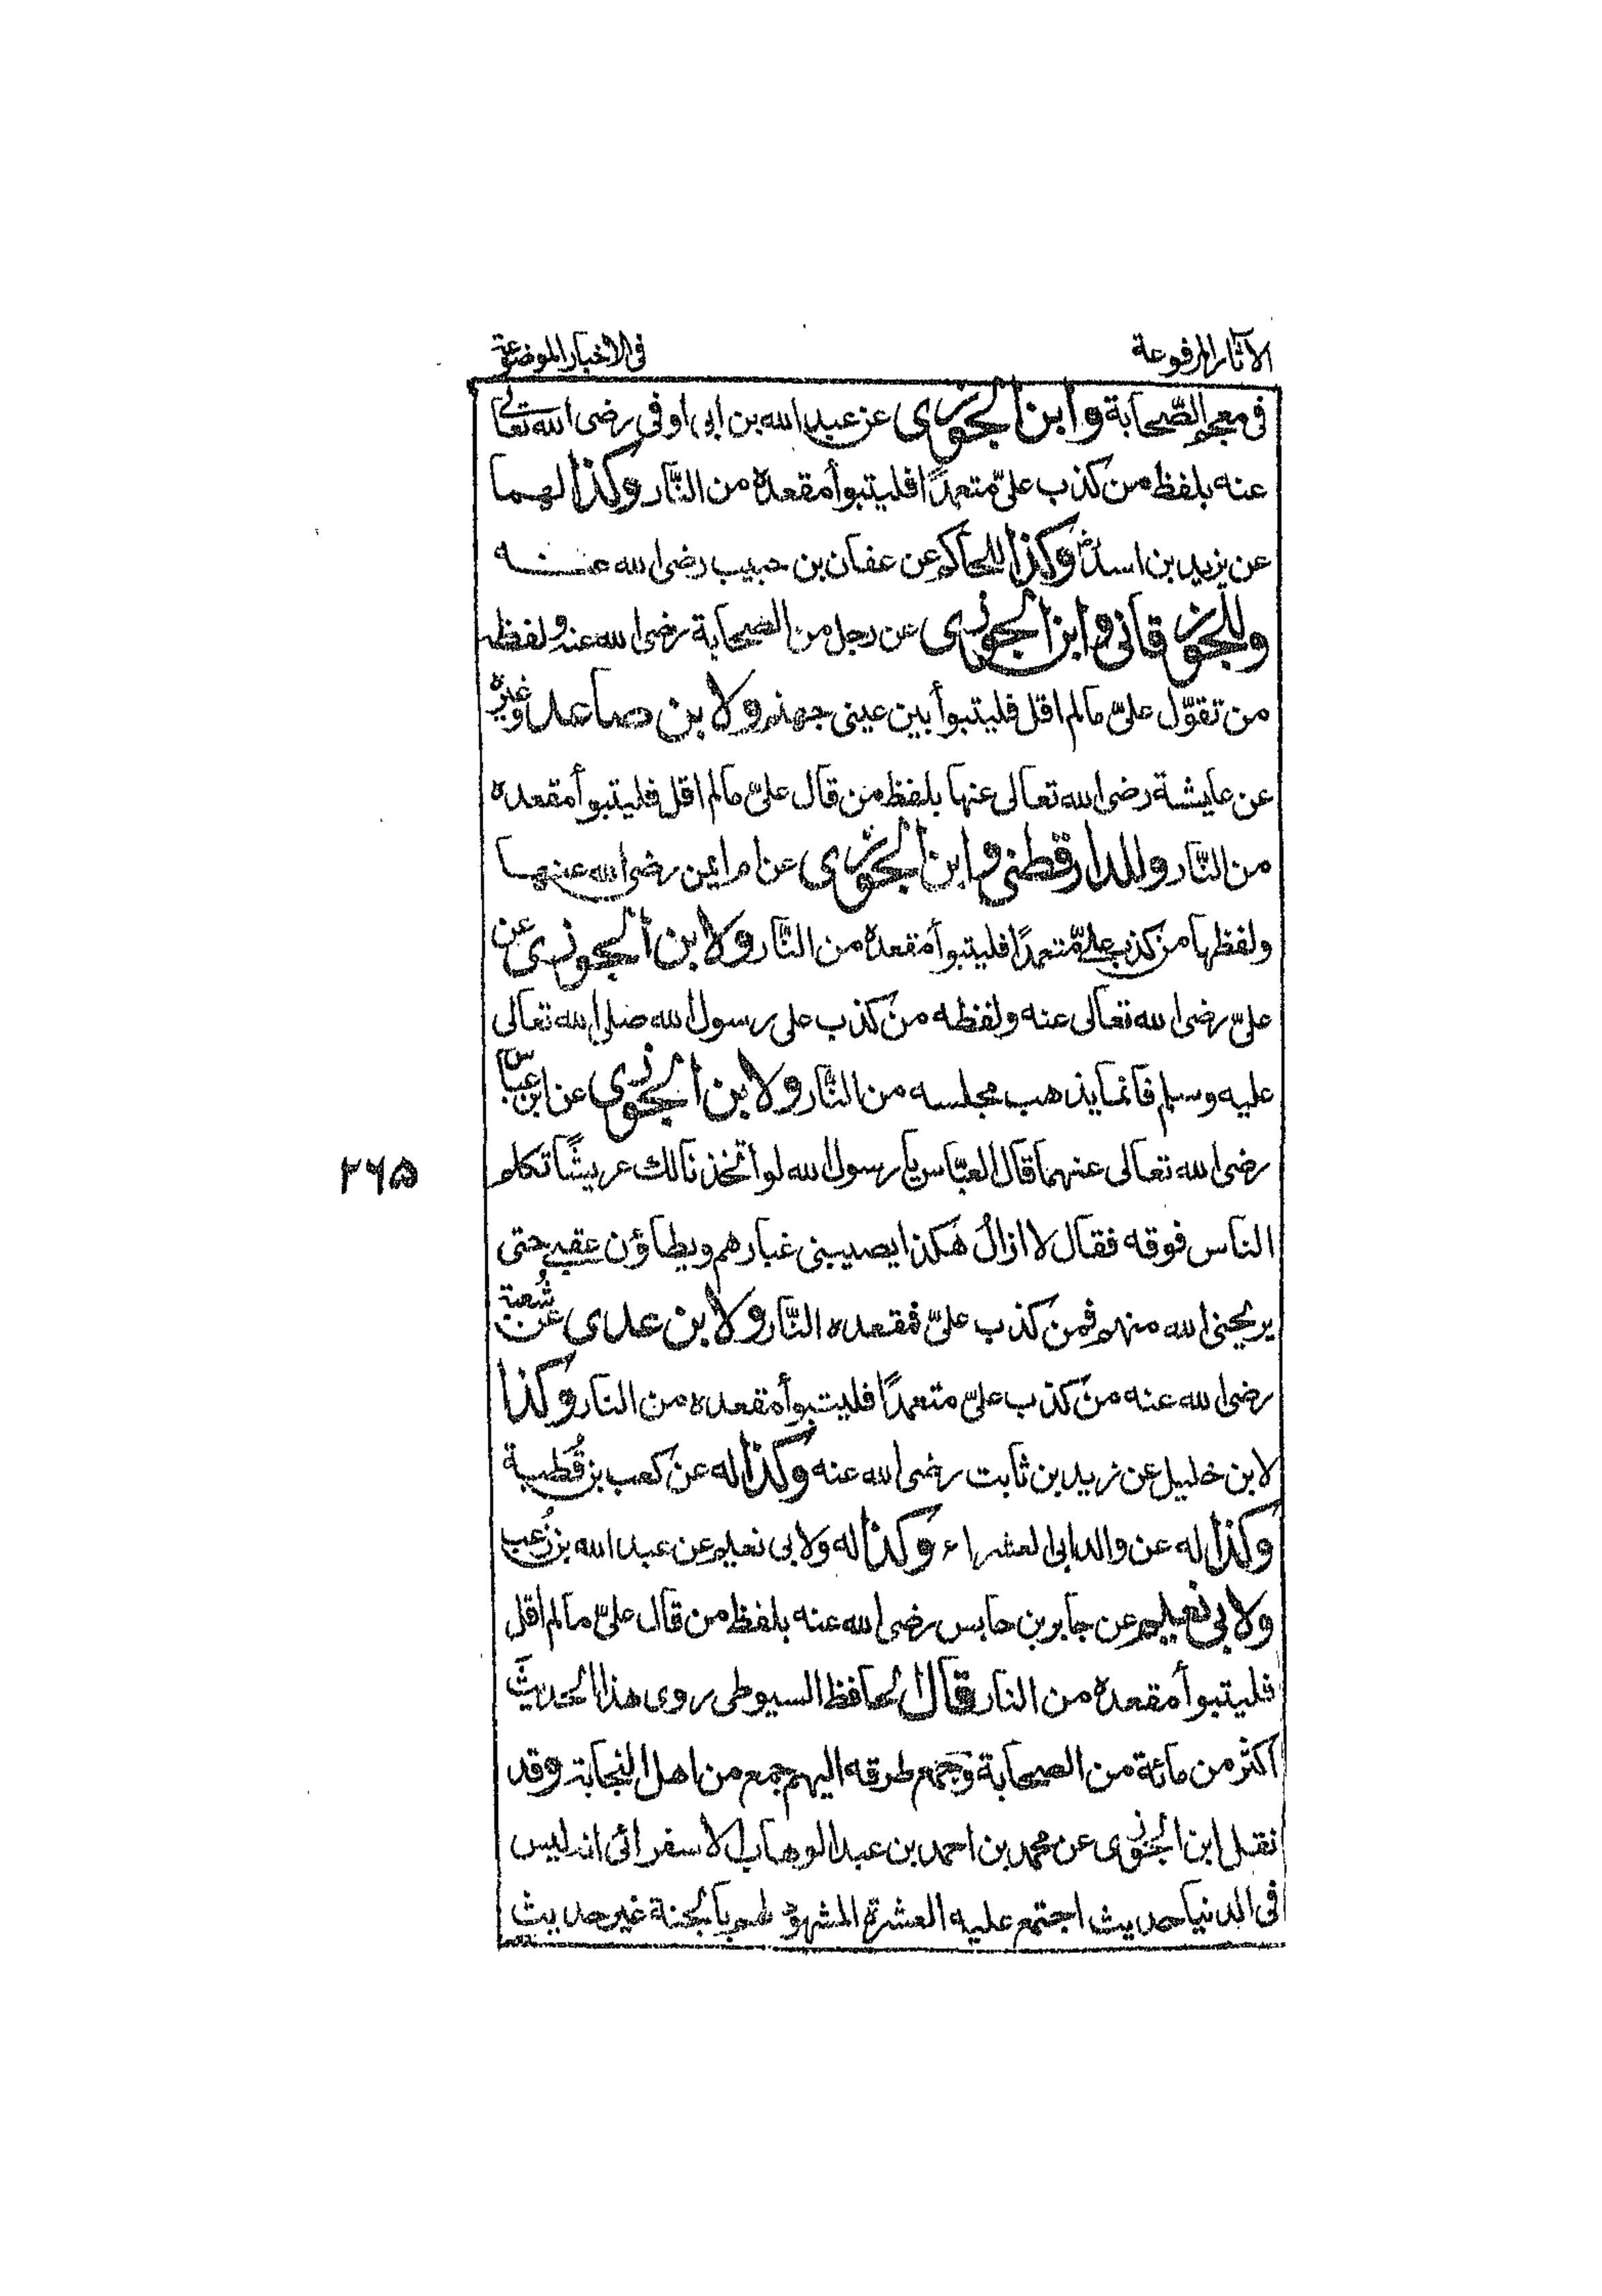 الآثار المرفوعة
فی الاخبار الموضوعة
فی معجم الصّحابة وابن الجوزی عن عبد الله بن ابی اوفی رضی الله تعالی
عنه بلفظ من کذب علیّ متعمدًا فلیتبوأ مقعدہ من النّار وکذا لهما
عن یزید بن اسد وکذا للحاکم عن عفان بن حبیب رضی الله عنه
وللجوزقانی وابن الجوزی عن رجل من الصحابة رضی الله عنه ولفظه
من تقوّل علیّ مالم اقل فلیتبوأ بین عینی جهنم ولابن صاعد وغیرہ
عن عایشة رضی الله تعالی عنها بلفظ من قال علیّ مالم اقل فلیتبوأ مقعدہ
من النّار وللدارقطنی وابن الجوزی عن ام ایمن رضی الله عنها
ولفظها من کذب علیّ متعمدًا فلیتبوأ مقعدہ من النّار ولابن الجوزی عن
علیّ رضی الله تعالی عنه ولفظه من کذب علی رسول الله صلی الله تعالی
علیه وسلم فانما یذهب مجلسه من النّار ولابن الجوزی عن ابن عبّاس
رضی الله تعالی عنهما قال العبّاس یا رسول الله لو اتخذنا لك عریشًا تکلم
الناس فوقه فقال لا ازالُ هکذا یصیبنی غبارهم ویطاؤن عقبی حتی
یریحنی الله منهم فمن کذب علیّ فمقعدہ النّار ولابن عدی عن شُعبة
رضی الله عنه من کذب علیّ متعمدًا فلیتبوأ مقعدہ من النار وکذا
لابن خلیل عن زید بن ثابت رضی الله عنه وکذا له عن کعب بن قُطبة
وکذا له عن والد ابی العشراء وکذا له ولابی نعیم عن عبد الله بن زُغب
ولابی نعیم عن جابر بن حابس رضی الله عنه بلفظ من قال علیّ مالم اقل
فلیتبوأ مقعدہ من النار قال الحافظ السیوطی روی هذا الحدیث
اکثر من مائة من الصحابة وجمع طرقه الیهم جمع من اهل النجابة وقد
نقل ابن الجوزی عن محمد بن احمد بن عبد الوهاب الاسفرائی انه لیس
فی الدنیا حدیث اجتمع علیه العشرة المشهود لهم بالجنة غیر حدیث
۲۶۵